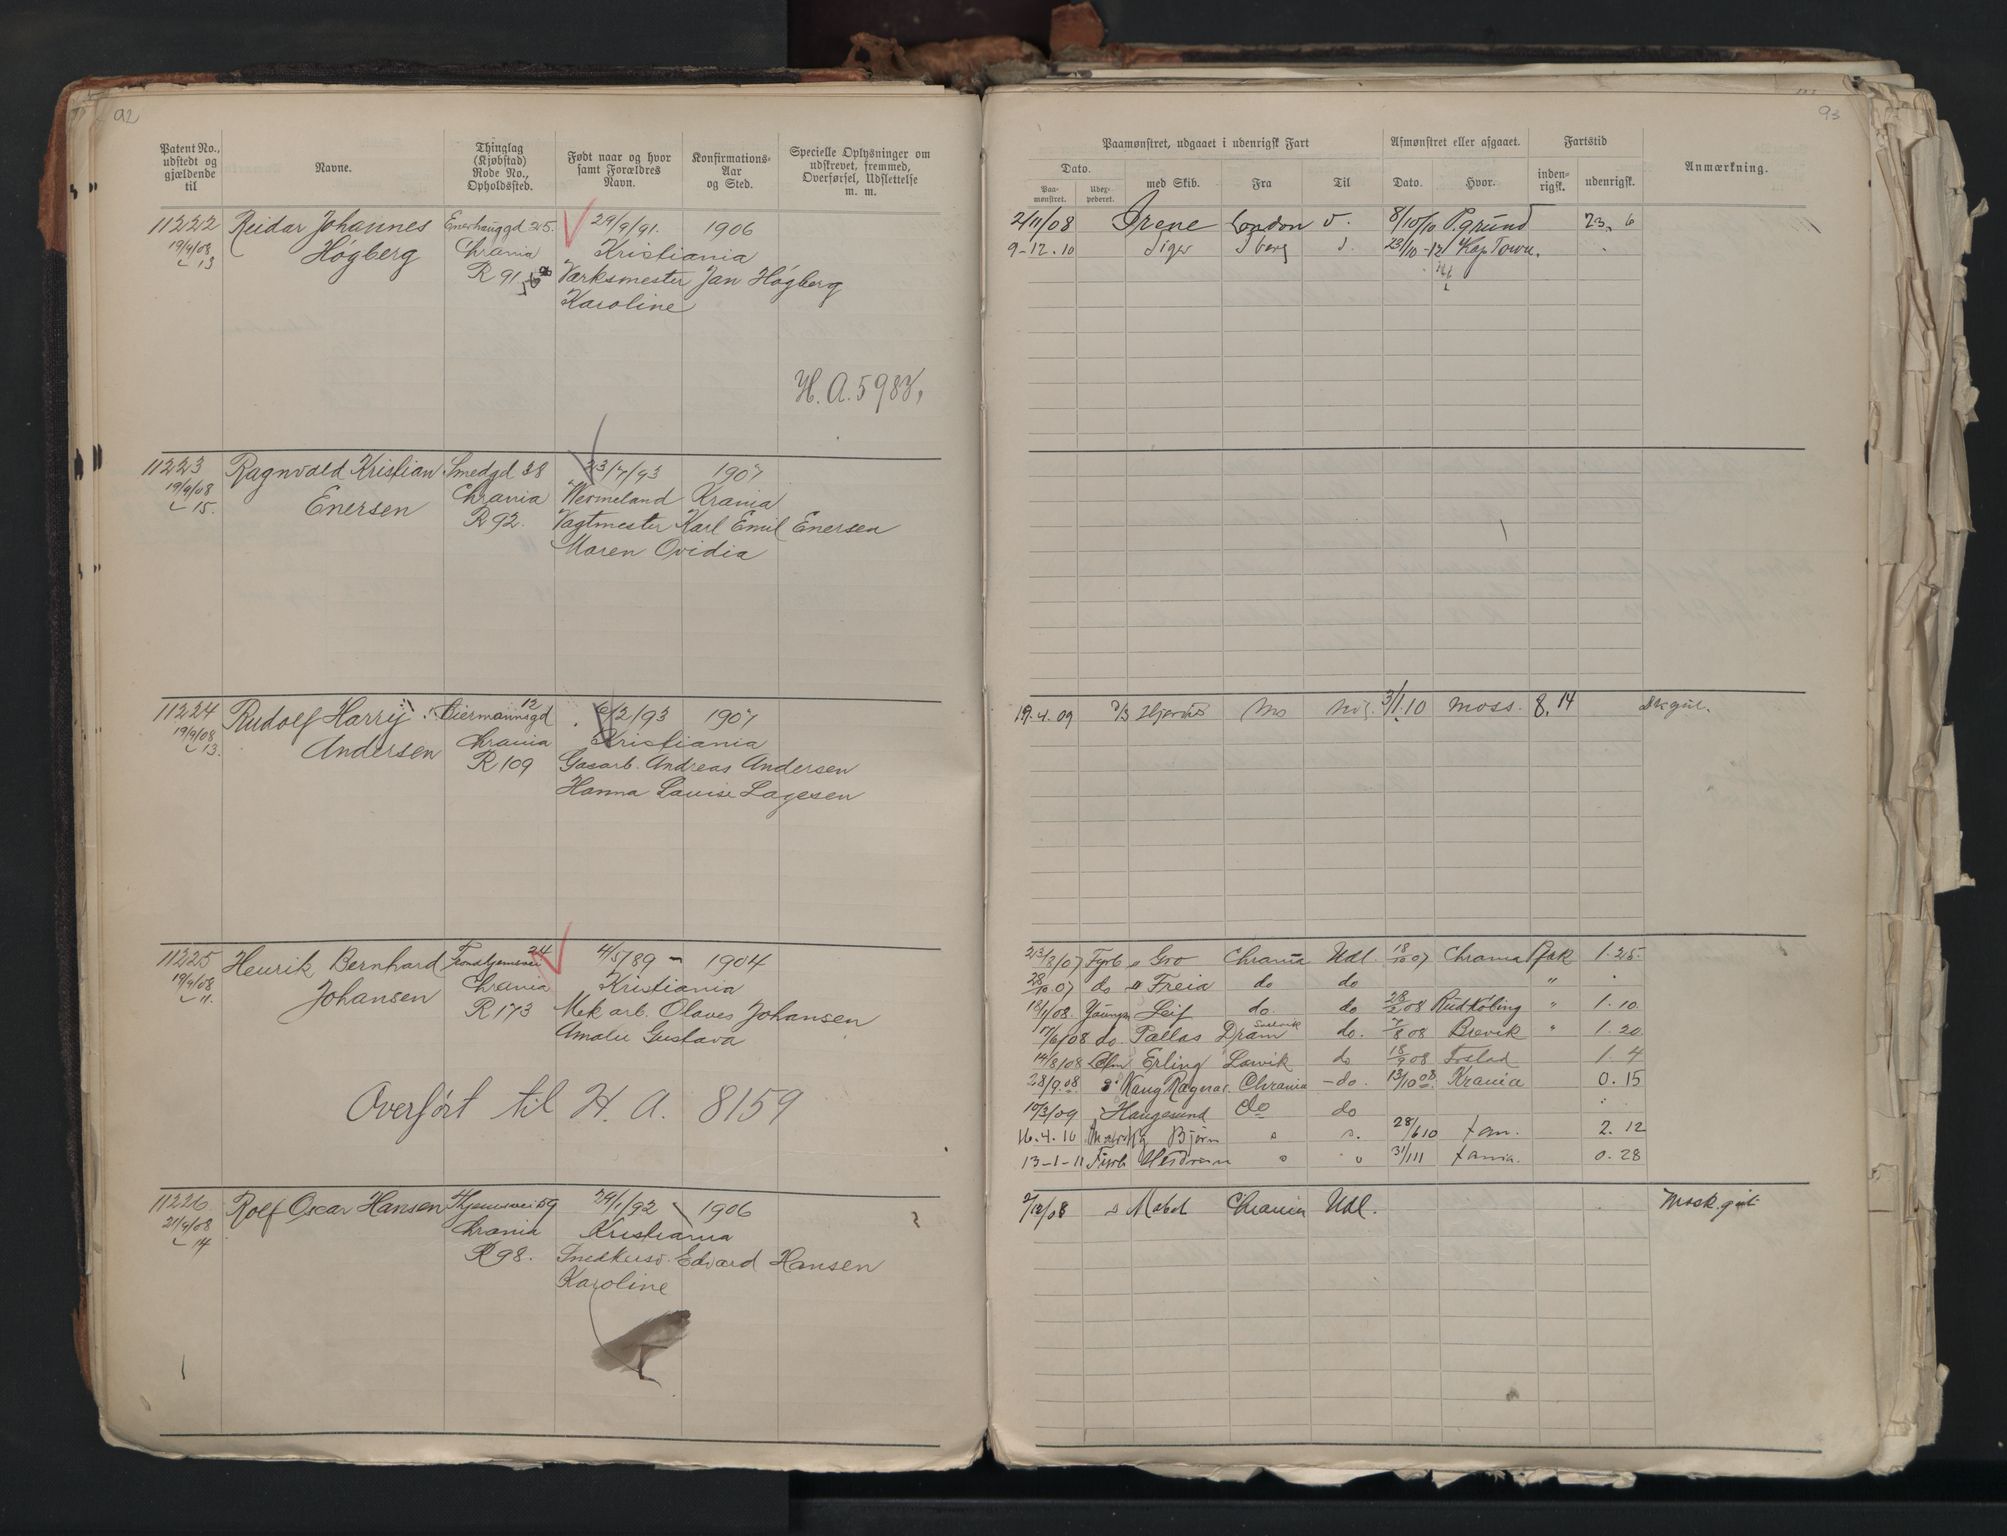 92
Patent No., udstedt og gjældende til
Navne.
Thinglag (Kjøbstad) Rode No., Opholdsted.
Født naar og hvor samt Forældres Navn.
Konfirmations-Aar og Sted.
Specielle Oplysninger om udskrevet, fremmed, Overførsel, Udslettelse m. m.
11222 Reidar Johannes Enerhauggd 25. 29/9/91. 1906
19/9/08 Høgberg Chrania Kristiania
13 R 91 Værksmester Jan Høgberg
Karoline
H. A. 5983,
11223 Ragnvald Kristian Smedgd 28 23/7/93 1907
19/9/08 Enersen Chrania Wermeland Krania
15. R 92. Vagtmester Karl Emil Enersen
Maren Ovidia
12
11224 Rudolf Harry Biermannsgd 6/2/93 1907
19/9/08 Andersen Chrania Kristiania
13. R 109 Gasarb. Andreas Andersen
Hanna Louise Lagesen
24
11225 Henrik Bernhard Trondhjemsvei 4/5/89 - 1904
19/9/08 Johansen Chrania Kristiania
11. R 173 Mek arb. Olaves Johansen
Amalie Gustava
Overført til H. A. 8159
11226 Rolf Oscar Hansen Thjemsvei 59 29/1/92 1906
21/9/08 Chrania Kristiania
14 R 98. Snedkersv. Edvard Hansen
Karoline
93
Paamønstret, udgaaet i udenrigsk Fart
Afmønstret eller afgaaet.
Fartstid
Anmærkning.
Dato.
Paa-mønstret.
Udex-pederet.
med Skib.
Fra
Til
Dato.
Hvor.
inden-rigsk.
udenrigsk.
2/11/08 Irene London v. 8/10/10 P.grund 23. 6
9-12.10 Tiger 23/10-12 Kap Town.
19.4.09 3/1.10 Moss. 8. 14
23/8/07 Fyrb s Gro Chrania Udl. 18/10 07 Chrania Pak 1.25.
28/10 07 do s Freia do do "
18/1/08 Leif do. do 28/2 08 Rudkøbing " 1.10
17/6/08 do. Pallas Dram Svelvik do. 7/8 08 Brevik " 1.20
14/8/08 Erling Larvik do 18/9 08 1.4
28/9.08 s Kong Ragnar. Chrania - do. 13/10 08 Krania 0.15
10/3/09 Haugesund do do
16.4.10 Bjørn 28/6 10 2.12
13-1-11 Fyrb 31/1 11 0.28
2/12/08 s Mabel Chrania Udl.